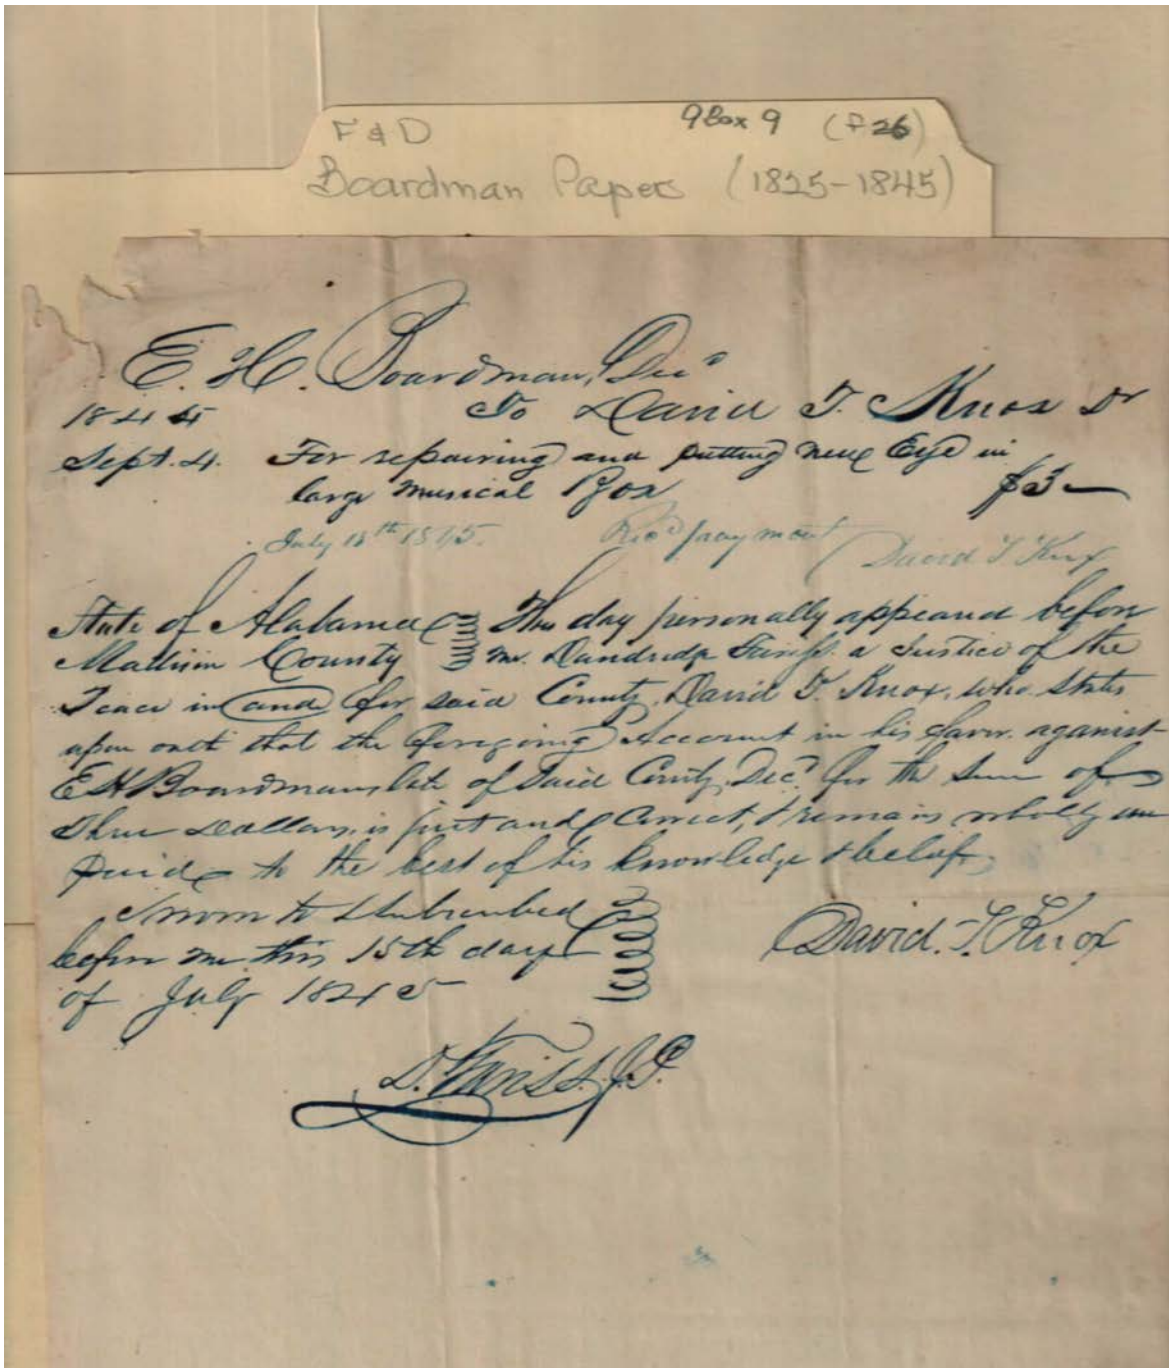 F & D 9 Box 9 (F26)
Boardman Papers (1825-1845)
E. H. Boardman, Decd
1844 To David T. Knox Dr
Sept. 4. For repairing and putting new Eye in
large Musical Box $3—
July 15th 1845. Recd payment David T Knox
State of Alabama This day personally appeared before
Madison County me. Dandridge Fariss. a Justice of the
Peace in and for said County, David T. Knox, who states
upon oath that the foregoing Account in his favor. against
E H Boardman, late of said County, Decd. for the sum of
Three Dollars, is just and Correct, & remains wholly un
paid to the best of his knowledge & belief,
Sworn to & Subscribed
before me this 15th day David. T. Knox
of July 1845
D. Fariss. J.P.